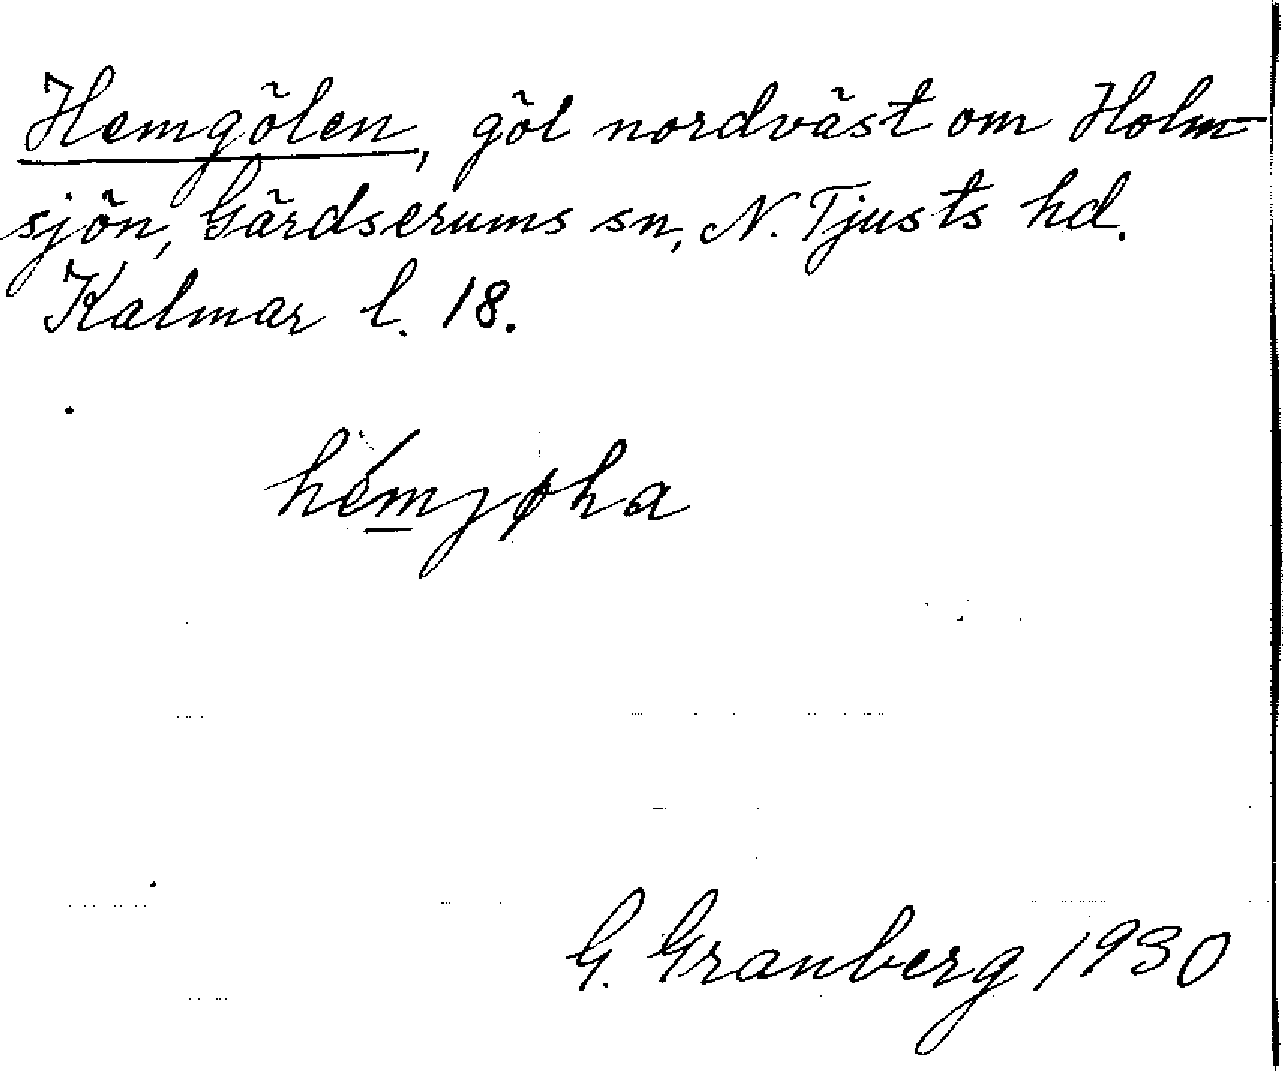 Hemgölen, göl nordväst om Holm-
sjön, Gärdserums sn, N. Tjusts hd.
Kalmar l. 18.
hémjøha
G. Granberg 1930